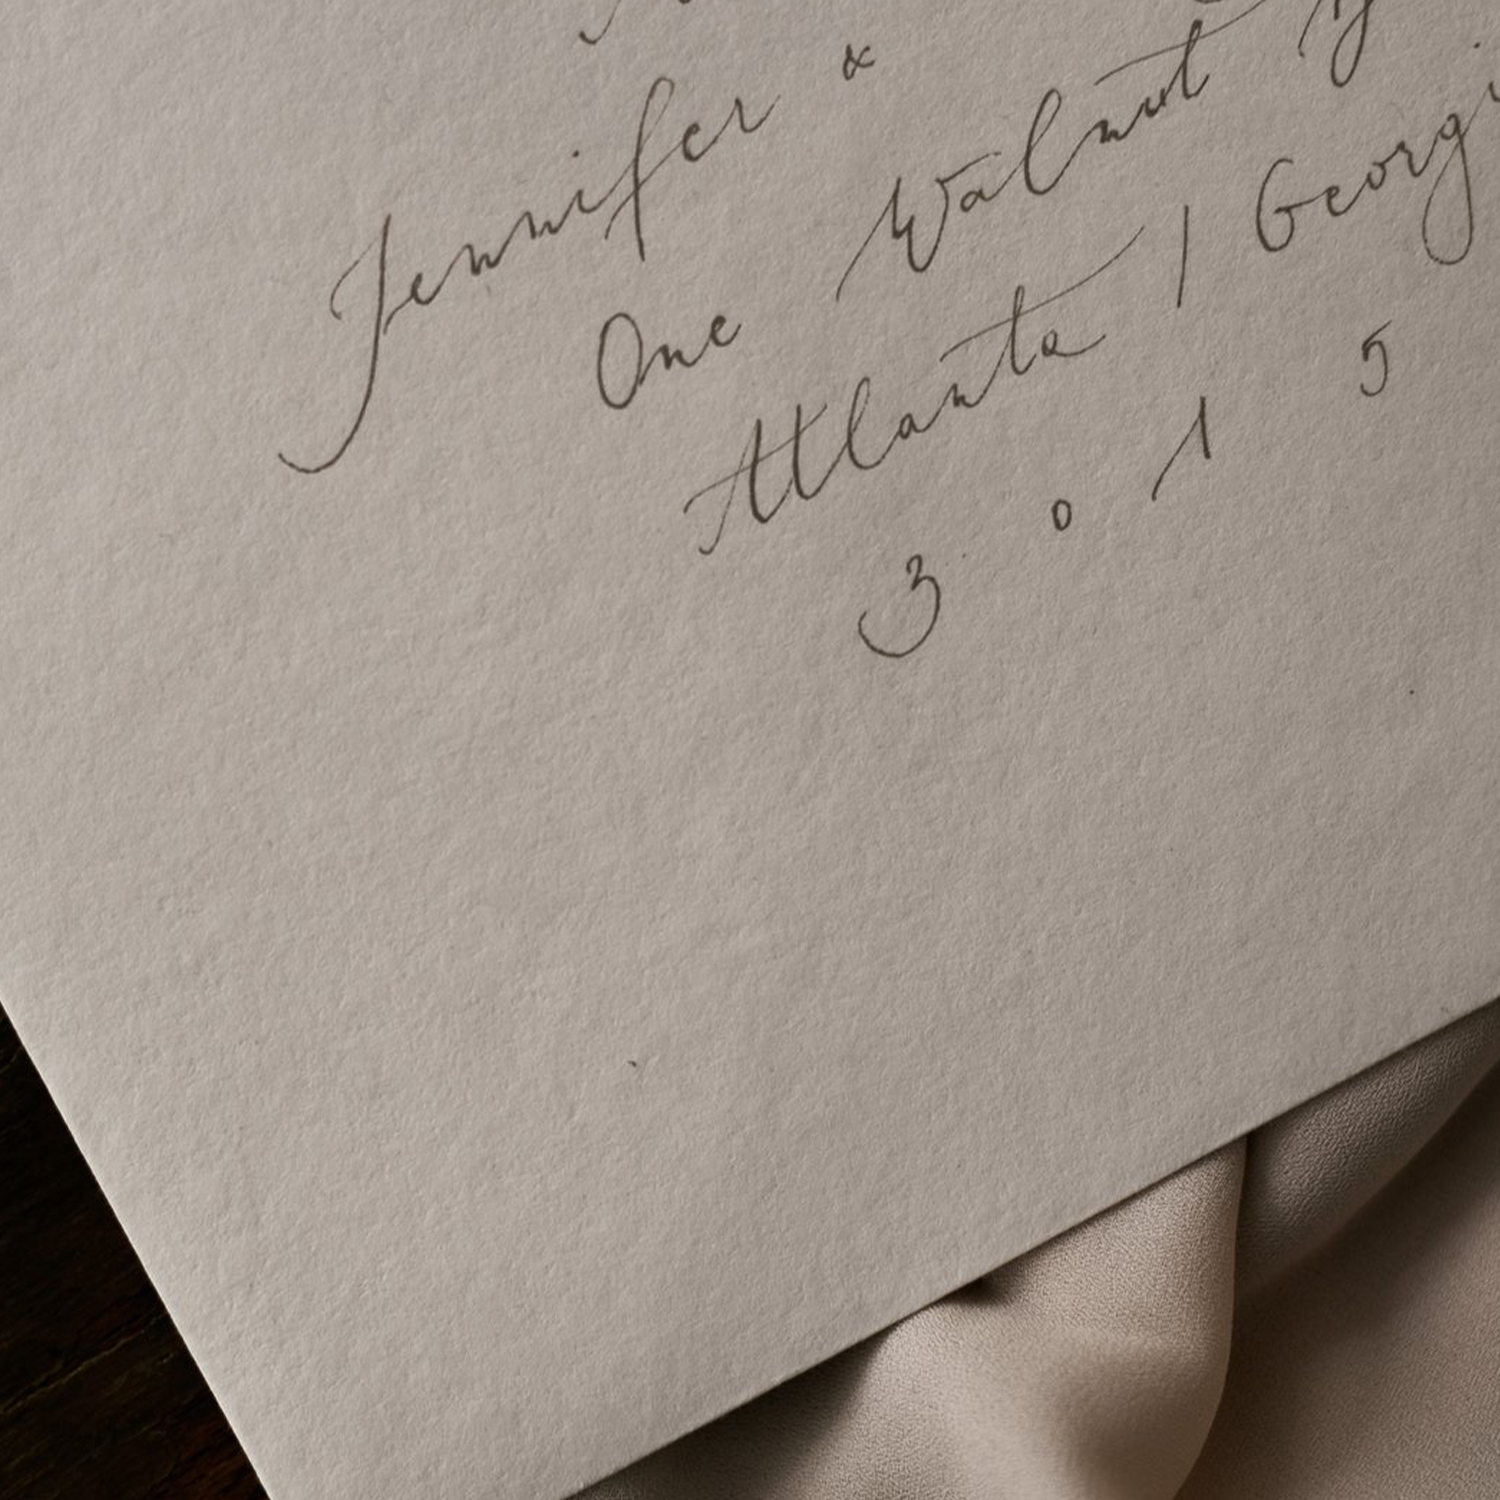 Jennifer &
One Walnut
Atlanta | Georgi
3 0 1 5